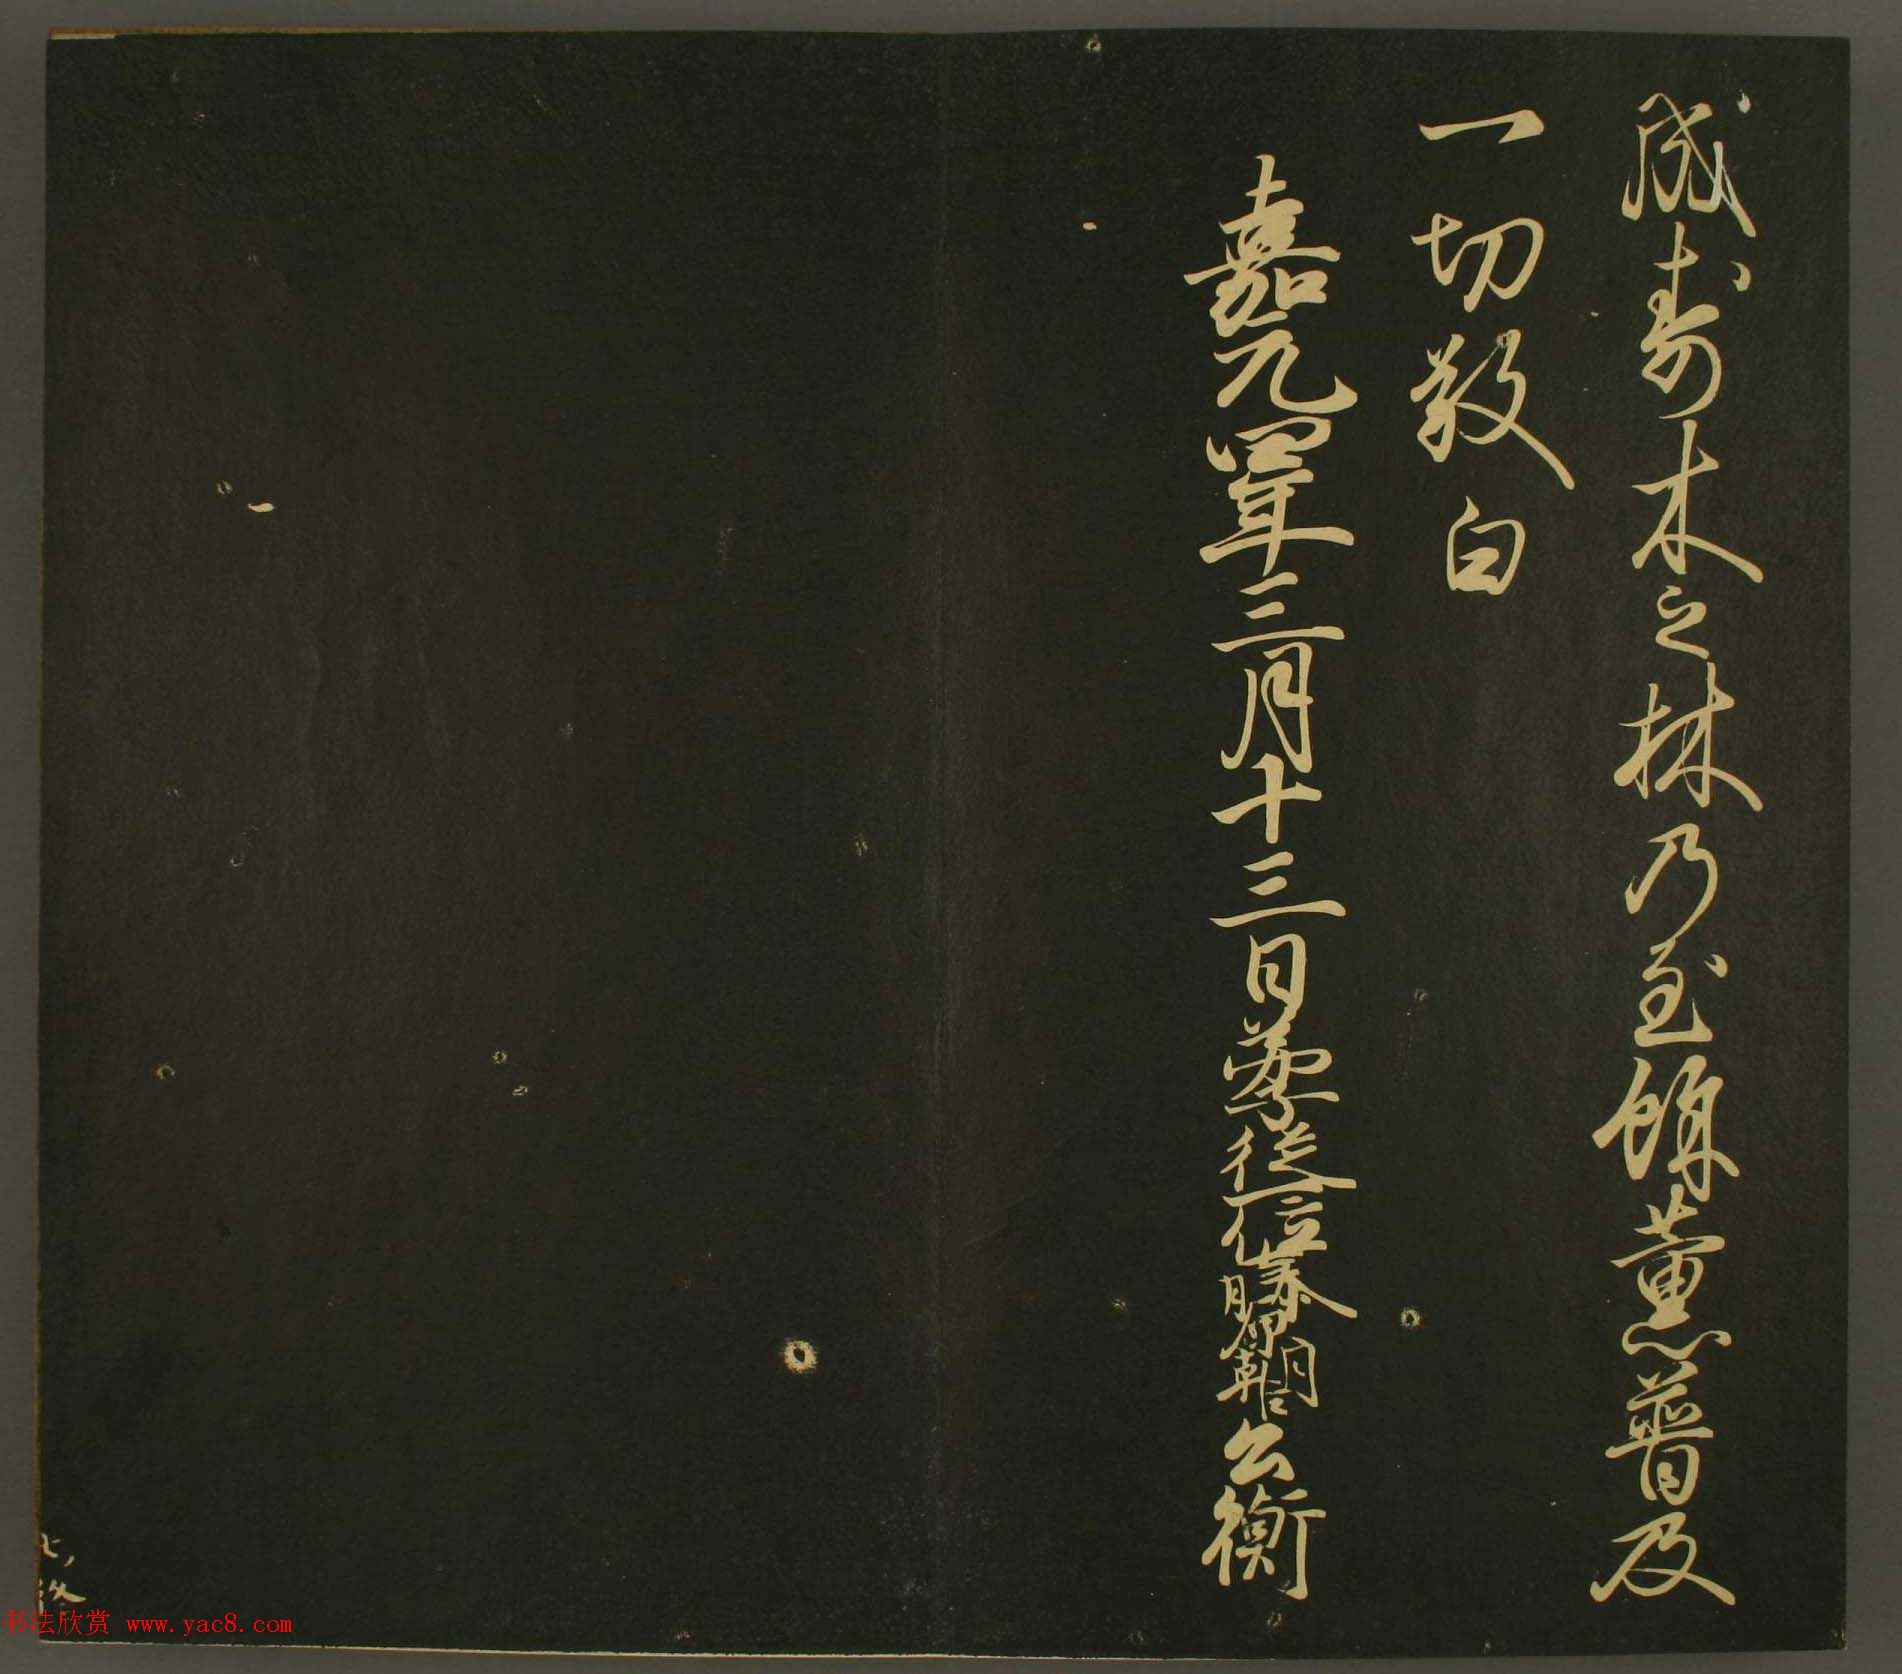 成寿木之林乃至餘薫普及
一切敬白
嘉元四年三月十三日従一位藤原朝臣公衡
七ノ終
书法欣赏 www.yac8.com